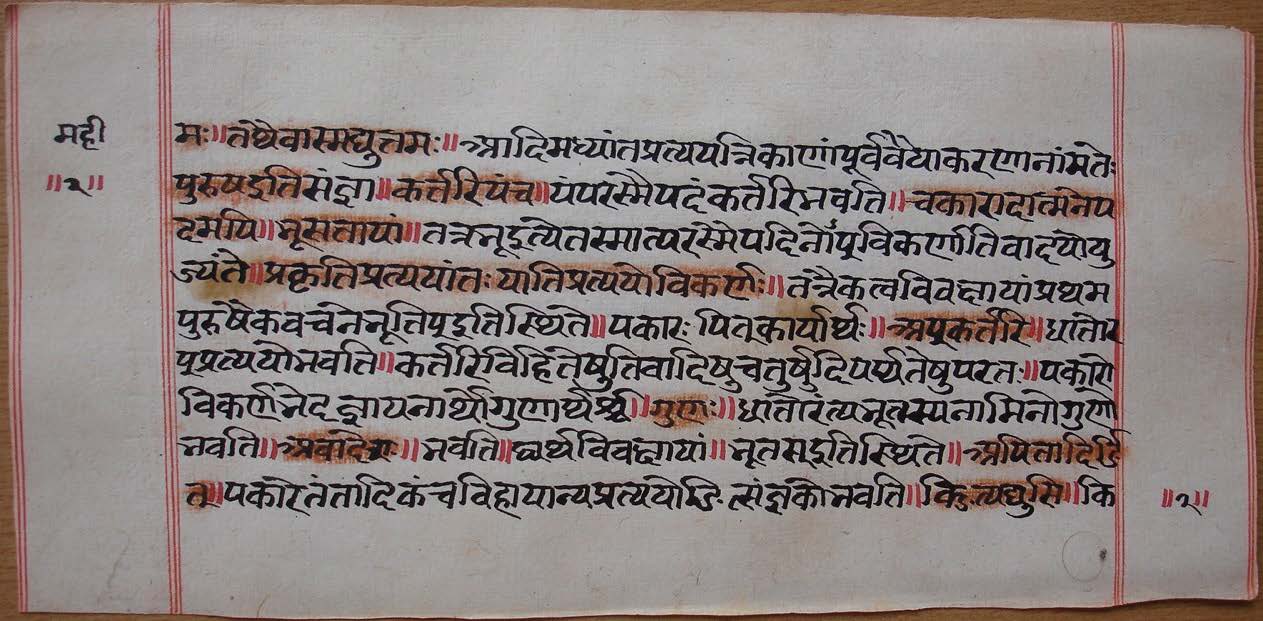 मही
॥२॥
मः॥तथैवास्मद्युत्तमः॥आदिमध्यांतप्रत्ययत्रिकाणांपूर्ववैयाकरणानांमते
पुरुषइतिसंज्ञा॥कर्तरिपंच॥पंपरस्मैपदंकर्तरिभवति॥चकारादात्मनेप
दमपि॥भूसत्तायां॥तत्रभूइत्येतस्मात्परस्मैपदिनोपुविकर्णातिवादयोयु
ज्यंते॥प्रकृतिप्रत्ययांतःयातिप्रत्ययोविकर्णः॥तत्रैकत्वविवक्षायांप्रथम
पुरुषैकवचनेभूतिप्इतिस्थिते॥पकारःपित्कार्यार्थः॥अप्कर्तरि॥धातोर
प्प्रत्ययोभवति॥कर्तरिविहितेषुतिबादिषुचतुर्षुदिपर्य्यतेषुपरतः॥पकारो
विकर्णभेदज्ञापनार्थोगुणार्थश्च॥गुणः॥धातोरंत्यभूतस्यनामिनोगुणो
भवति॥अवादेशः॥भवति॥द्व्यर्थविवक्षायां॥भूतस्इतिस्थिते॥अपित्तादिर्ङि
त्॥पकारेतंतादिकंचविहायान्यप्रत्ययोङित्संज्ञकोभवति॥क्ङित्यद्युसि॥कि
॥२॥